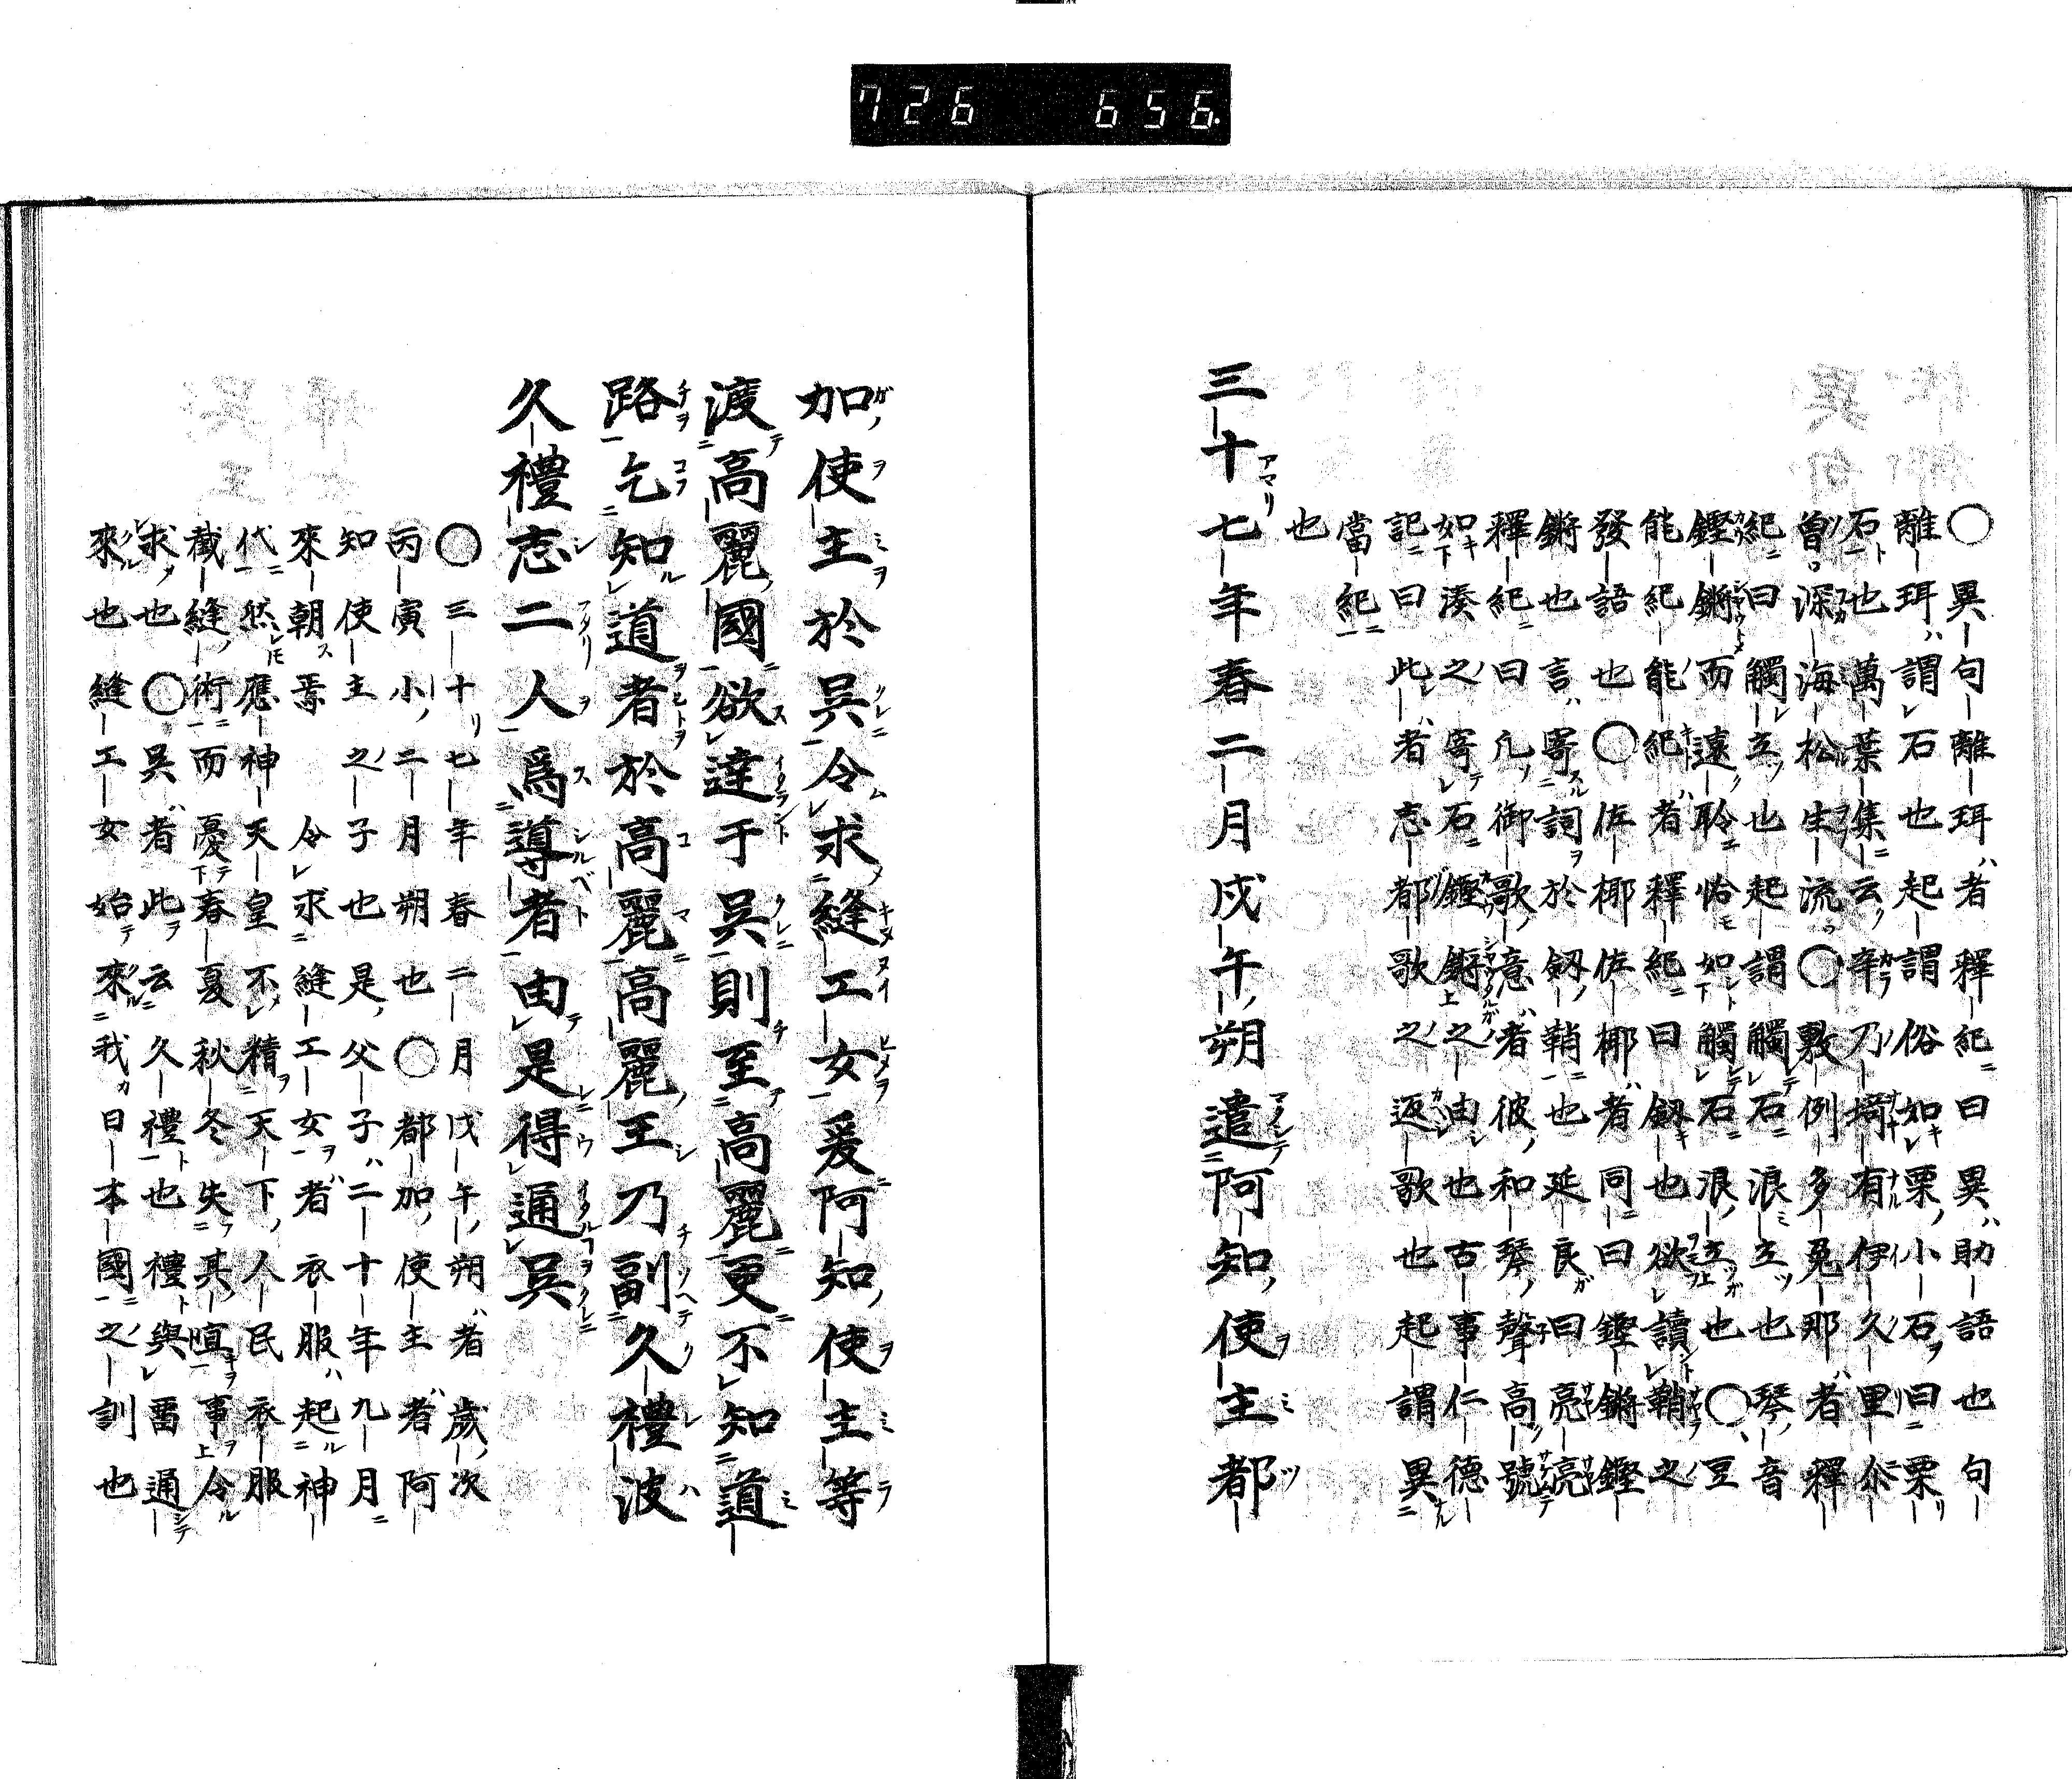 726 656.
○異句離珥者釋紀曰異助語也句
離珥謂石也起謂俗如栗小石曰栗
石也萬葉集云辛乃埼有伊久里尒
曾深海松生流○敷例多菟那者釋
紀曰觸立也起謂觸石浪立也琴音
鏗鏘而遠聆恰如觸石浪立也○豆
能紀能紀者釋紀曰劔也欲讀鞘之
發語也○佐椰佐椰者同曰鏗鏘鏗
鏘也言寄詞於劔鞘也延良曰亮亮
釋紀曰凡御歌意者彼和琴聲高號
如湊之寄石鏗鏘之由也古事仁德
記曰此者志都歌之返歌也起謂異
當紀
也
三十七年春二月戊午朔遣阿知使主都
加使主於吳令求縫工女爰阿知使主等
渡高麗國欲達于吳則至高麗更不知道
路乞知道者於高麗高麗王乃副久禮波
久禮志二人爲導者由是得通吳
○三十七年春二月戊午朔者歲次
丙寅小二月朔也○都加使主者阿
知使主之子也是父子二十年九月
來朝焉令求縫工女者衣服起神
代然應神天皇不精天下人民衣服
裁縫術而憂春夏秋冬失其宜事令
求也○吳者此云久禮也禮與畱通
來也縫工女始來我日本國之訓也